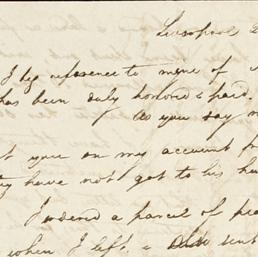 Liverpool 2
I beg reference to mine of
has been duly honored & paid.
As you say
you on my account
have not got to his
I ordered a parcel of
when I left, & sent